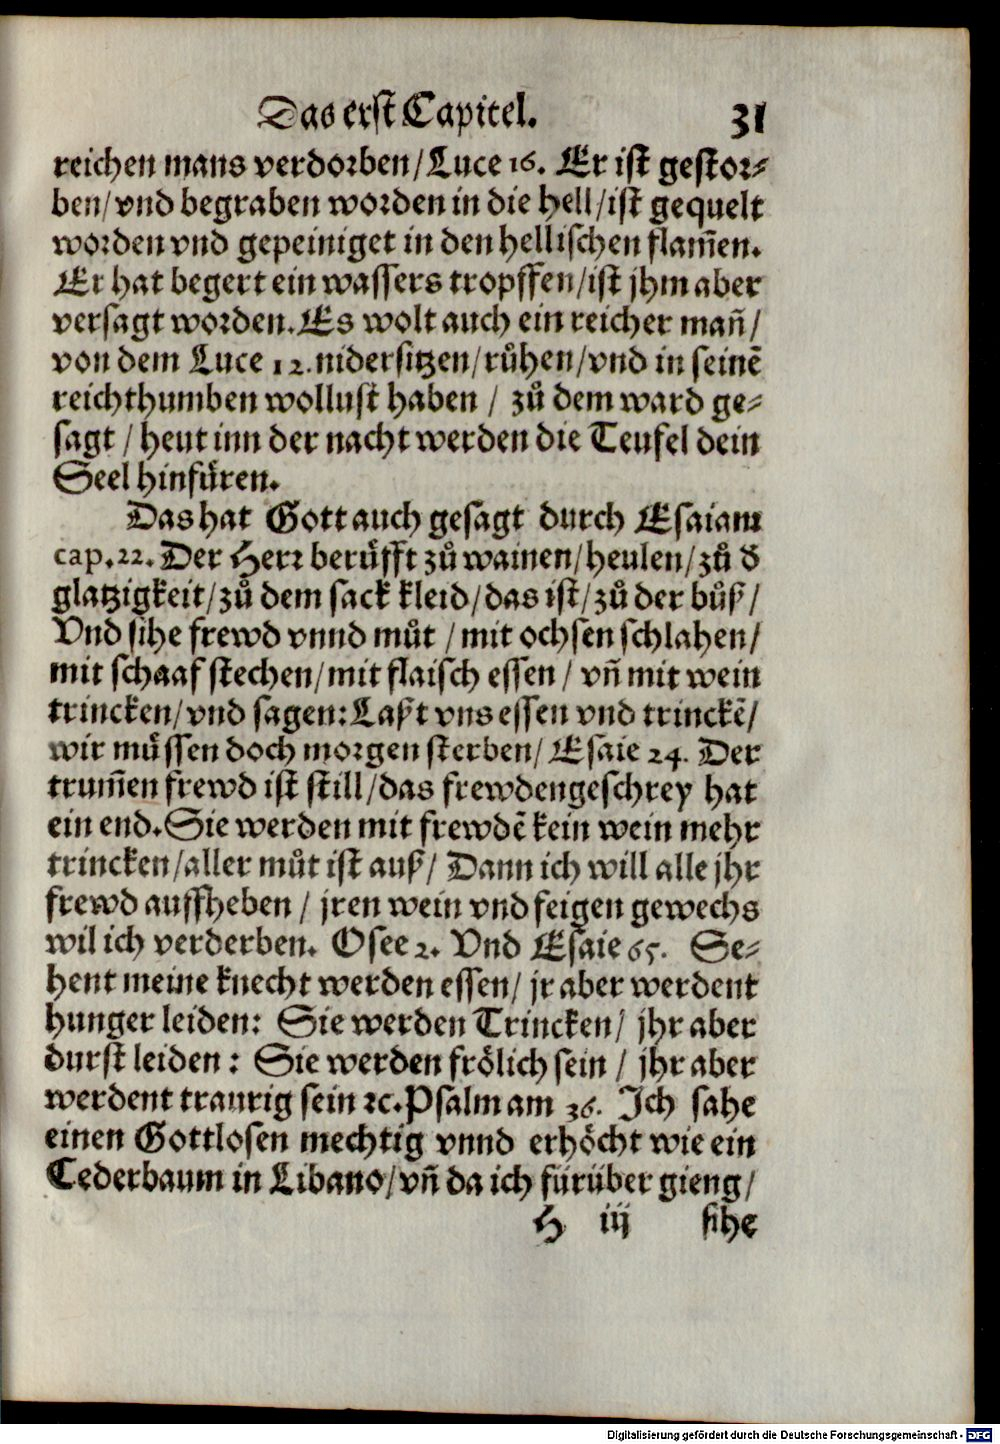 Das erst Capitel. 31
reichen mans verdorben/Luce 16. Er ist gestor-
ben/vnd begraben worden in die hell/ist gequelt
worden vnd gepeiniget in den hellischen flam̃en.
Er hat begert ein wassers tropffen/ist jhm aber
versagt worden. Es wolt auch ein reicher mañ/
von dem Luce 12. nidersitzen/růhen/vnd in seinẽ
reichthumben wollust haben / zů dem ward ge-
sagt / heut inn der nacht werden die Teufel dein
Seel hinfüren.
Das hat Gott auch gesagt durch Esaiam
cap. 22. Der Herr berüfft zů wainen/heulen/zů d̃
glatzigkeit/zů dem sack kleid/das ist/zů der bůß/
Vnd sihe frewd vnnd můt / mit ochsen schlahen/
mit schaaf stechen/mit flaisch essen / vñ mit wein
trincken/vnd sagen: Laßt vns essen vnd trinckẽ/
wir müssen doch morgen sterben/ Esaie 24. Der
trum̃en frewd ist still/das frewdengeschrey hat
ein end. Sie werden mit frewdẽ kein wein mehr
trincken/aller můt ist auß/ Dann ich will alle jhr
frewd auffheben / jren wein vnd feigen gewechs
wil ich verderben. Osee 2. Vnd Esaie 65. Se-
hent meine knecht werden essen/ jr aber werdent
hunger leiden: Sie werden Trincken/ jhr aber
durst leiden: Sie werden frölich sein / jhr aber
werdent traurig sein ꝛc. Psalm am 36. Ich sahe
einen Gottlosen mechtig vnnd erhöcht wie ein
Cederbaum in Libano/vñ da ich fürüber gieng/
H iij sihe
Digitalisierung gefördert durch die Deutsche Forschungsgemeinschaft - DFG